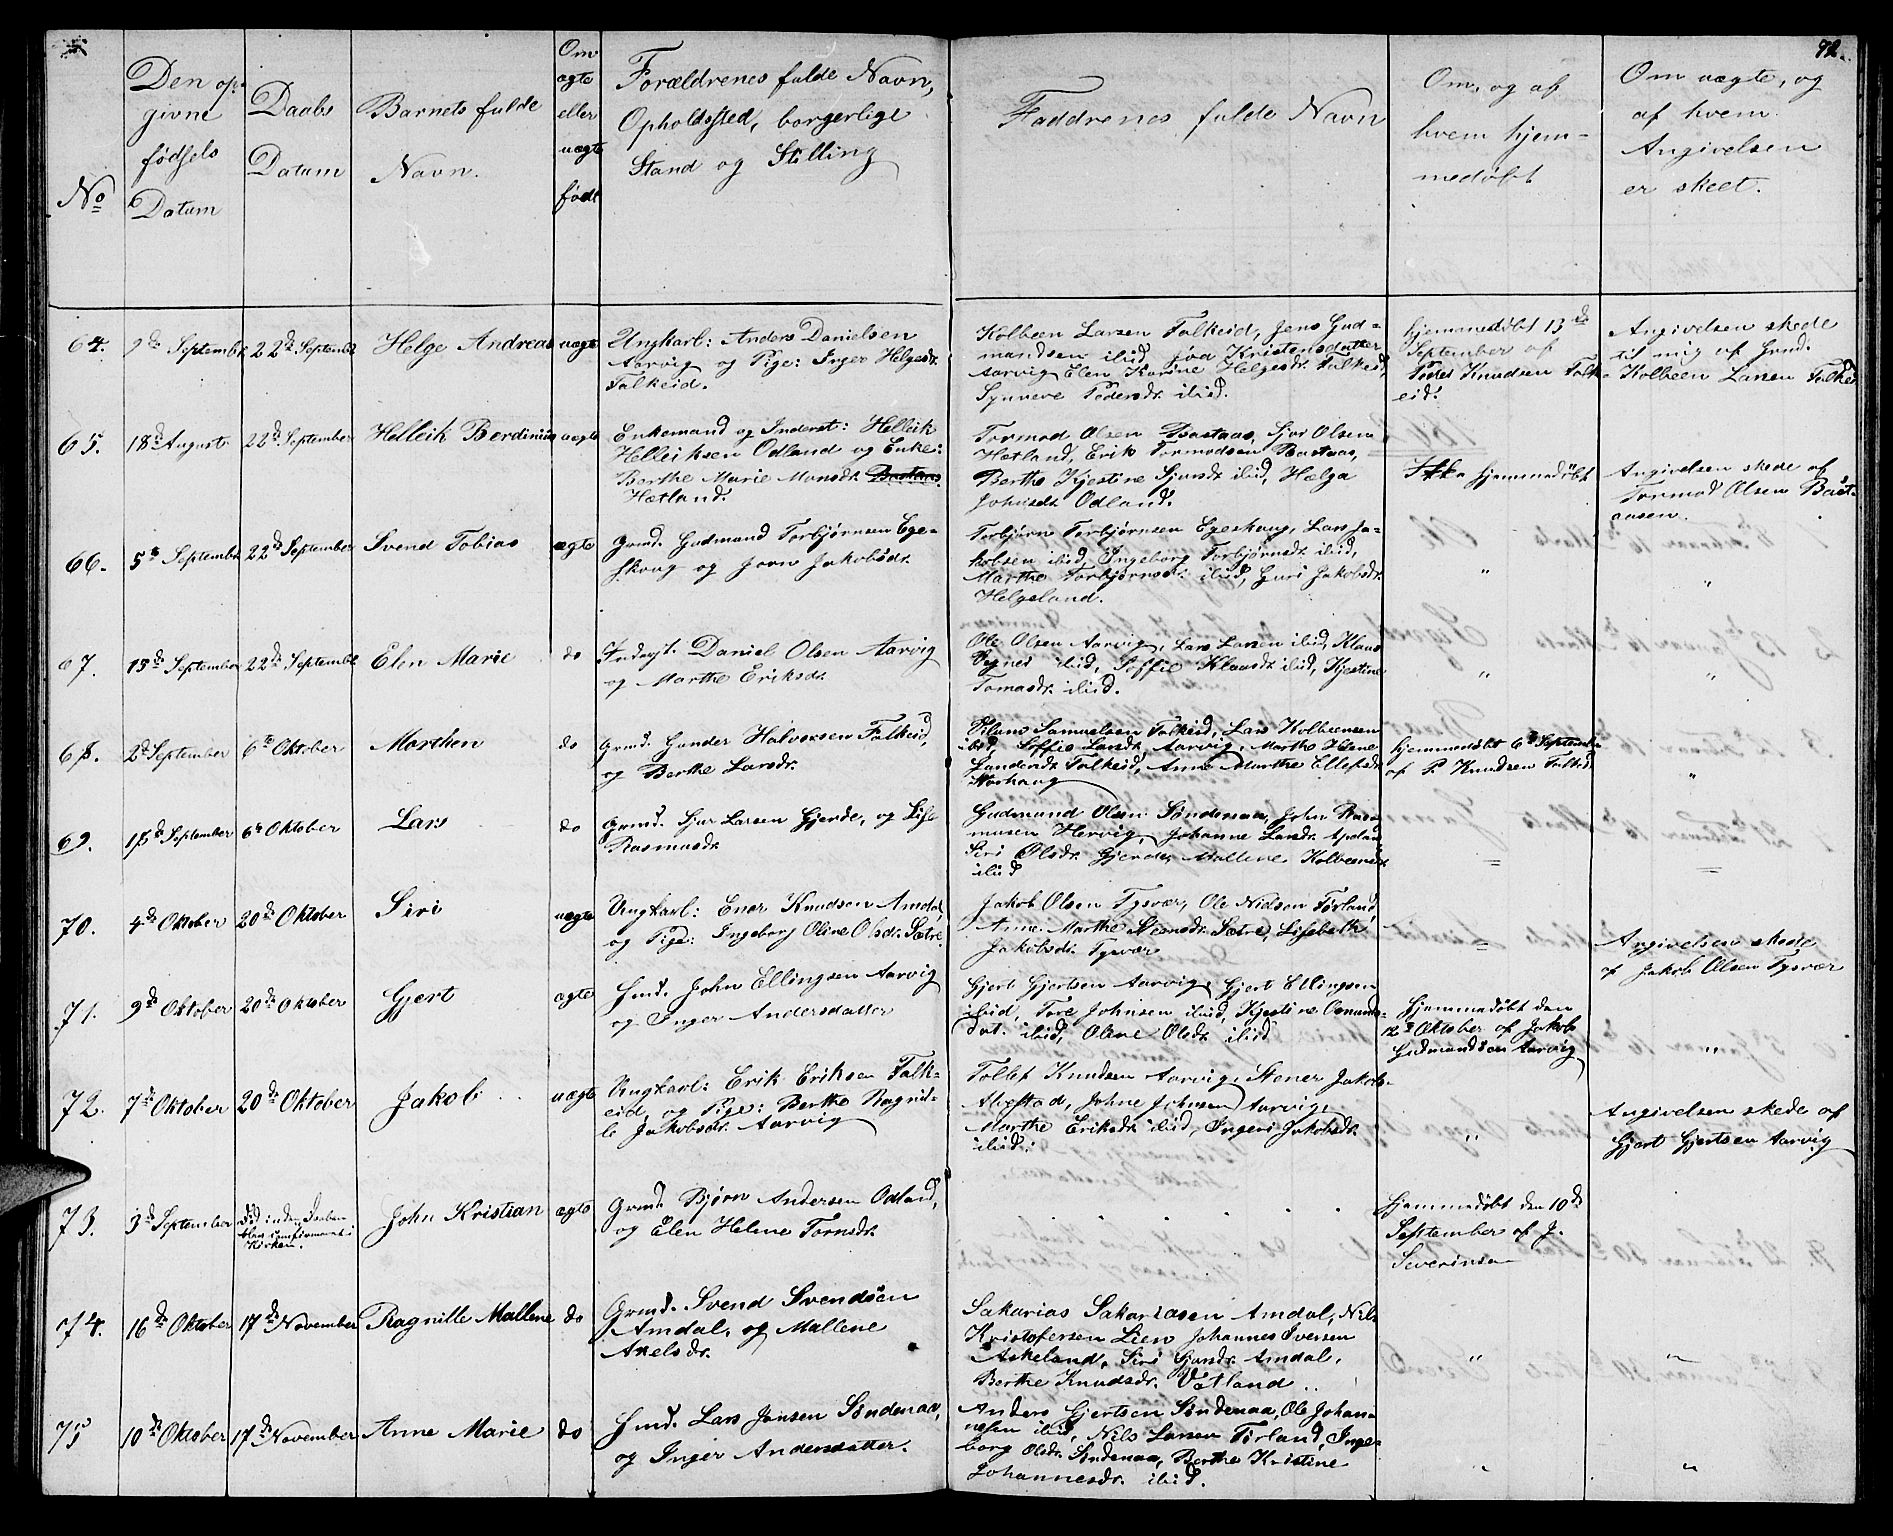 72.
No
Den op-
givne
fødsels
Datum
Daabs
Datum
Barnets fulde
Navn.
Om
ægte
eller
uægte
født
Forældrenes fulde Navn,
Opholdssted, borgerlige
Stand og Stilling
Faddrenes fulde Navn
Om, og af
hvem hjem-
medøbt
Om uægte, og
af hvem
Angivelsen
er skeet.
64.
9de September
22de September
Helge Andreas
uægte
Ungkarl: Anders Danielsen
Aarvig og Pige: Inger Helgesdr.
Falkeid.
Kolbeen Larsen Falkeid, Jens Gud-
mandsen ibid, Kristensdatter
Aarvig Elen Karine Helgesdr. Falkeid,
Synneve Pedersdr. ibid.
hjemmedøbt 13de
September af
Peder Knudsen Falk-
eid.
Angivelsen skede
til mig af Grmd.
Kolbeen Larsen Falkeid
65.
18de August
22de September
Helleik Berdinius
uægte
Enkemand og Inderst: Helleik
Helleiksen Odland og Enke:
Berthe Marie Monsdr. Bastaas.
Hetland.
Tormod Olsen Bastaas, Sjur Olsen
Hetland, Erik Tormodsen Bastaas,
Berthe Kjestine Sjursdr. ibid, Hælga
Johnsdr. Odland.
Ikke hjemmedøbt
Angivelsen skede af
Tormod Olsen Bast-
aasen.
66.
5te September
22de September
Svend Tobias
ægte
Grmd. Gudmund Torbjørnsen Ege-
skoug og Jorin Jakobsdr.
Torbjørn Torbjørnsen Egeskoug, Lars Ja-
kobsen ibid, Ingeborg Torbjørnsdr. ibid,
Marthe Torbjørnsdr. ibid, Guri Jakobsdr.
Helgeland.
"
"
67.
13de September
22de September
Elen Marie
do
Inderst. Daniel Olsen Aarvig
og Marthe Eriksdr.
Ole Olsen Aarvig, Lars Larsen ibid, Klaus
ibid, Soffie Klausdr. ibid, Kjestine
Tomasdr. ibid.
"
"
68.
2de September
6te Oktober
Marthen
do
Grmd. Gunder Halvorsen Falkeid,
og Berthe Larsdr.
Samuelsen Falkeid, Lars Kolbeensen
ibid, Soffie Larsdr. Aarvig, Marthe Helene
Gundersdr. Falkeid, Anne Marthe Ellefsdr.
Storhaug
hjemmedøbt 6te September
af P. Knudsen Falkeid.
"
69.
15de September
6te Oktober
Lars
do
Grmd. Sjur Larsen Gjerde, og Lise
Rasmusdr.
Gudmund Olsen Søndenaa, John Ras-
musen Hervig, Johanne Larsdr.
Siri Olsdr. Gjerde, Mallene Kolbeensdr.
ibid
"
"
70.
4de Oktober
20de Oktober
Siri
uægte
Ungkarl: Enar Knudsen Amdal,
og Pige: Ingeborg Oline Olsdr. Sætre.
Jakob Olsen Tysvær, Ole Nielsen Førland,
Anne Marthe Steensdr. Sætre, Lisebeth
Jakobsdr. Tysvær
"
Angivelsen skede
af Jakob Olsen Tysvær
71.
9de Oktober
20de Oktober
Gjert
ægte
Hmd. John Ellingsen Aarvig
og Inger Andersdatter
Gjert Gjertsen Aarvig, Gjert Ellingsen
ibid, Tore Johnsen ibid, Kjestine Osmunds-
dat. ibid, Oline Olsdr. ibid
Hjemmedøbt den
12te Oktober af Jakob
Gudmundsen Aarvig
"
72.
7de Oktober
20de Oktober
Jakob
uægte
Ungkarl: Erik Eriksen Falk-
eid, og Pige: Berthe Ragnil-
le Jakobsdr. Aarvig
Tollef Knudsen Aarvig, Stener Jakobs.
Alvestad, Johne Johnsen Aarvig,
Marthe Eriksdr. ibid, Ingeri Jakobsdr.
ibid.
"
Angivelsen skede af
Gjert Gjertsen Aarvig
73.
3de September
Død inden Daaben
blev comfirmeret i
Kirken.
John Kristian
ægte
Grmd. Bjørn Andersen Odland,
og Elen Helene Tornsdr.
Hjemmedøbt den 10de
September af J.
Severinsen
74.
16de Oktober
17de November
Ragnille Mallene
do
Grmd. Svend Svendsen
Amdal, og Mallene
Axelsdr.
Sakarias Sakariasen Amdal, Nils
Kristofersen Lien, Johannes Iversen
Askeland, Siri Sjursdr. Amdal,
Berthe Knudsdr. Vatland
"
"
75
10de Oktober
17de November
Anne Marie
do
Hmd. Lars Jansen Søndenaa,
og Inger Andersdatter.
Anders Gjertsen Søndenaa, Ole Johan-
nesen ibid, Nils Larsen Førland, Inge-
borg Olsdr. Søndenaa, Berthe Kristine
Johannesdr. ibid.
"
"